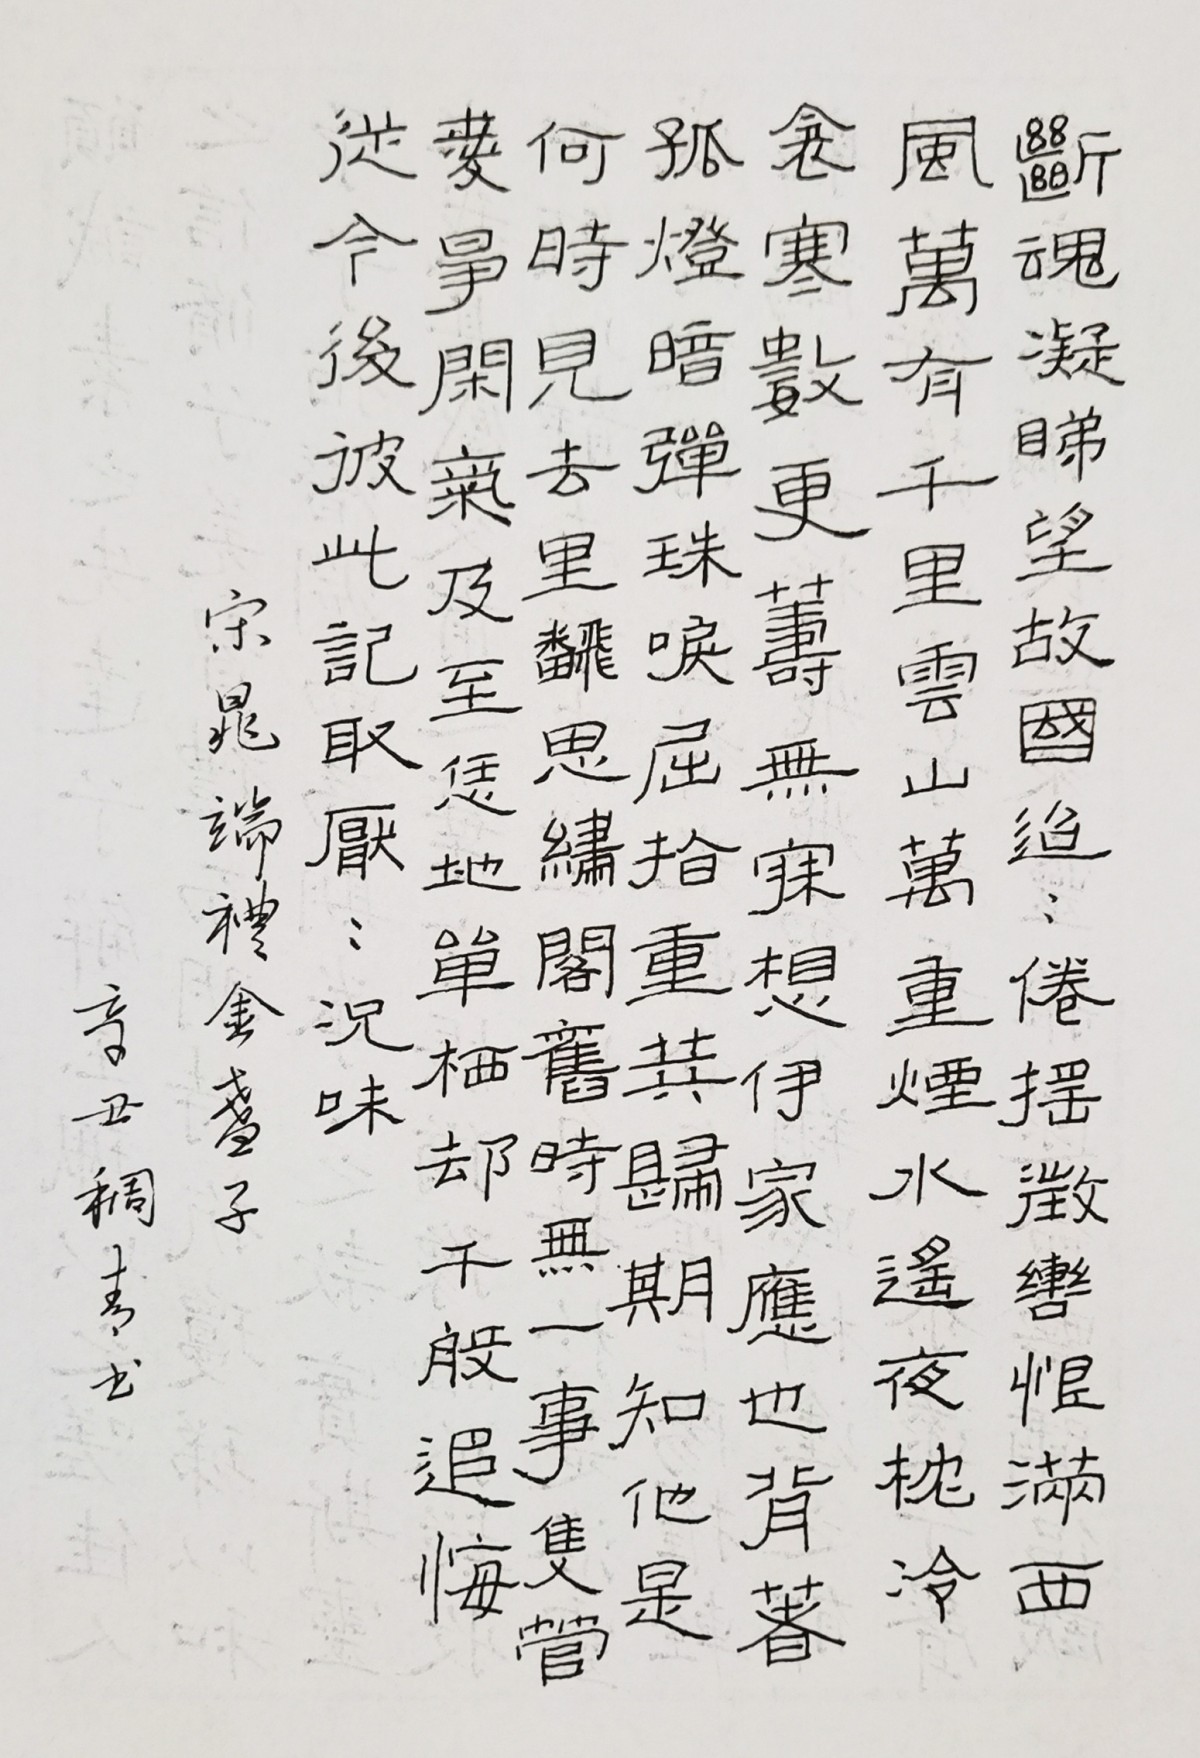 斷魂凝睇望故國迢〻倦搖徵轡恨滿西
風萬有千里雲山萬重煙水遙夜枕冷
衾寒數更籌無寐想伊家應也背著
孤燈暗彈珠唳屈指重共歸期知他是
何時見去里飜思繡閣舊時無一事隻管
愛爭閑氣及至恁地單栖却千般追悔
從今後彼此記取厭〻況味
宋晁端禮金盞子
辛丑稠青書